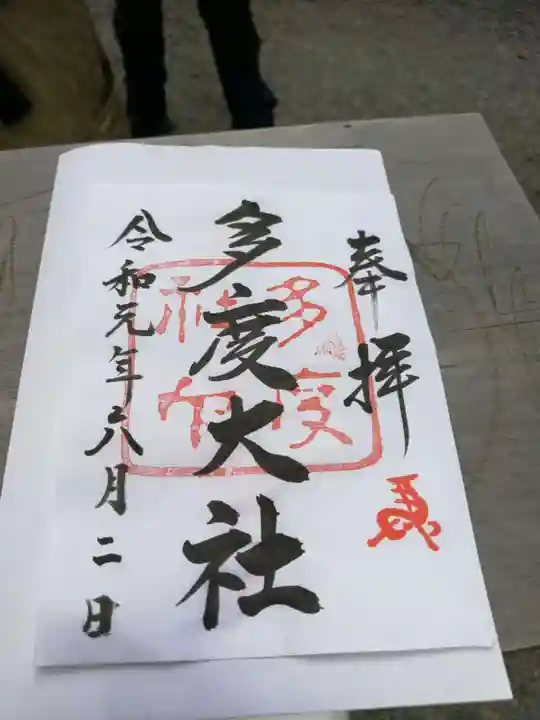 奉拝
多度大社
令和元年六月二日
多度